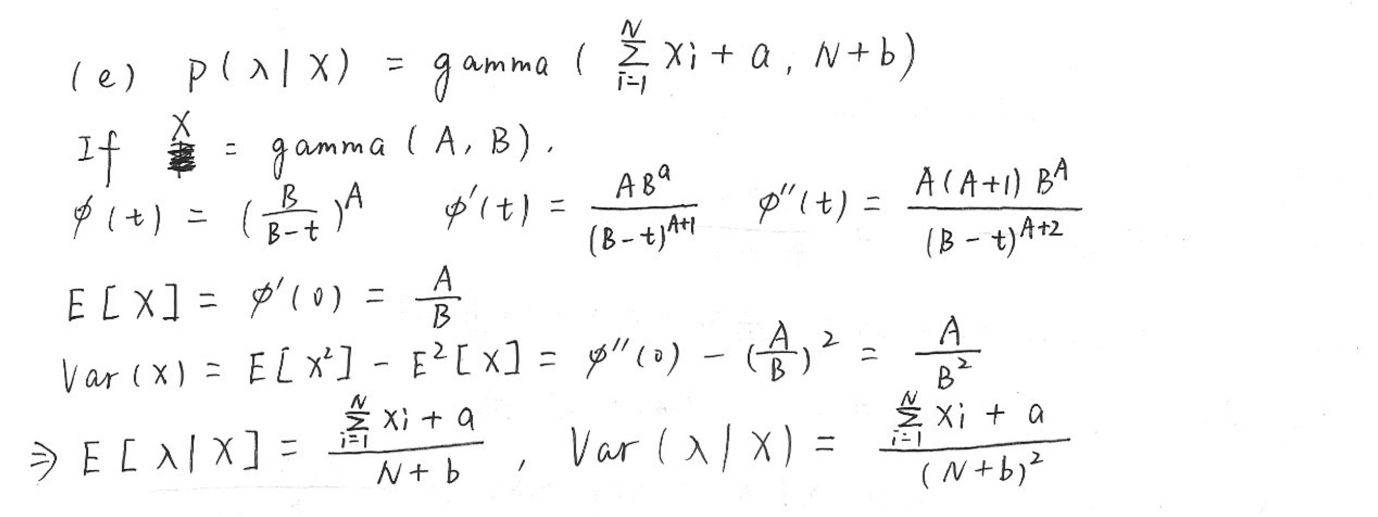 (e) p(λ|X) = gamma ( \sum_{i=1}^{N} Xi + a , N+b)
If X = gamma ( A , B ) .
φ(t) = (\frac{B}{B-t})^A φ'(t) = \frac{AB^a}{(B-t)^{A+1}} φ''(t) = \frac{A(A+1) B^A}{(B-t)^{A+2}}
E[X] = φ'(0) = \frac{A}{B}
Var(X) = E[X^2] - E^2[X] = φ''(0) - (\frac{A}{B})^2 = \frac{A}{B^2}
⇒ E[λ|X] = \frac{\sum_{i=1}^{N} Xi + a}{N+b} , Var(λ|X) = \frac{\sum_{i=1}^{N} Xi + a}{(N+b)^2}